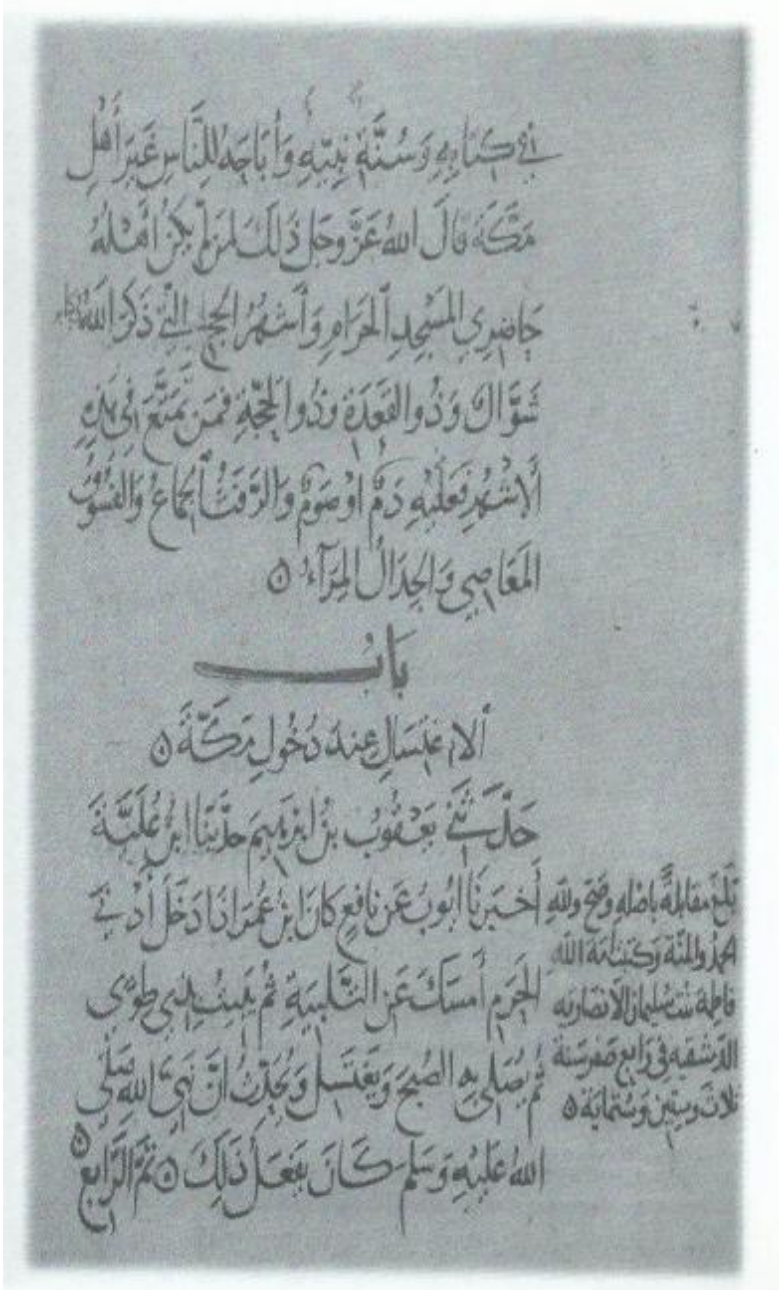 في كِتَابِهِ وَسُنَّةِ نَبِيِّهِ وَأَبَاحَهُ لِلنَّاسِ غَيرَ أَهْلِ
مَكَّةَ قَالَ اللهُ عَزَّ وَجَل ذَلِكَ لِمَن لَم يَكُن أَهْلُهُ
حَاضِرِي المَسْجِدِ الحَرَامِ وَأَشْهُرُ الحَجِّ الَّتِي ذَكَرَ اللهُ
شَوَّال وَذُو القَعْدَةِ وَذُو الحِجَّةِ فَمَن تَمَتَّعَ في هَذِهِ
الأَشْهُرِ فَعَلَيْهِ دَمٌ أَوْ صَوْمٌ وَالرَّفَثُ الجِمَاعُ وَالفُسُوقُ
المَعَاصِي وَالجِدَالُ المِرَآءُ ۞
بَابُ
الاغتِسَالِ عِندَ دُخُولِ مَكَّةَ ۞
حَدَّثَني يَعْقُوبُ بنُ ابرهِيمَ حدَّثَنا ابنُ عُلَيَّةَ
أَخبَرنَا أَيوبُ عَن نافِعٍ كَانَ ابنُ عُمَرَ اذَا دَخَلَ أَدْنَى
الحَرَمِ أَمسَكَ عَنِ التَّلبِيَةِ ثُمَّ يَبِيتُ بِذِي طِوًى
ثُم يُصَلي بِهِ الصُبحَ وَيَغتَسِلُ وَيُحَدِّثُ انَّ نَبِيَّ اللهِ صَلَّى
اللهُ عَلَيْهِ وَسَلم كَانَ يَفعَلُ ذَلِكَ ۞ تَمَّ الرَّابِعُ ۞
بَلَغَ مقابلةً باصله وصَحَّ ولله
الحمدُ والمنّة وكتبَت أمة الله
فاطمة بنت سليمان الانصاريه
الدمشقيه في رَابِع صَفر سَنة
ثلاث وستين وستمايَة ۞